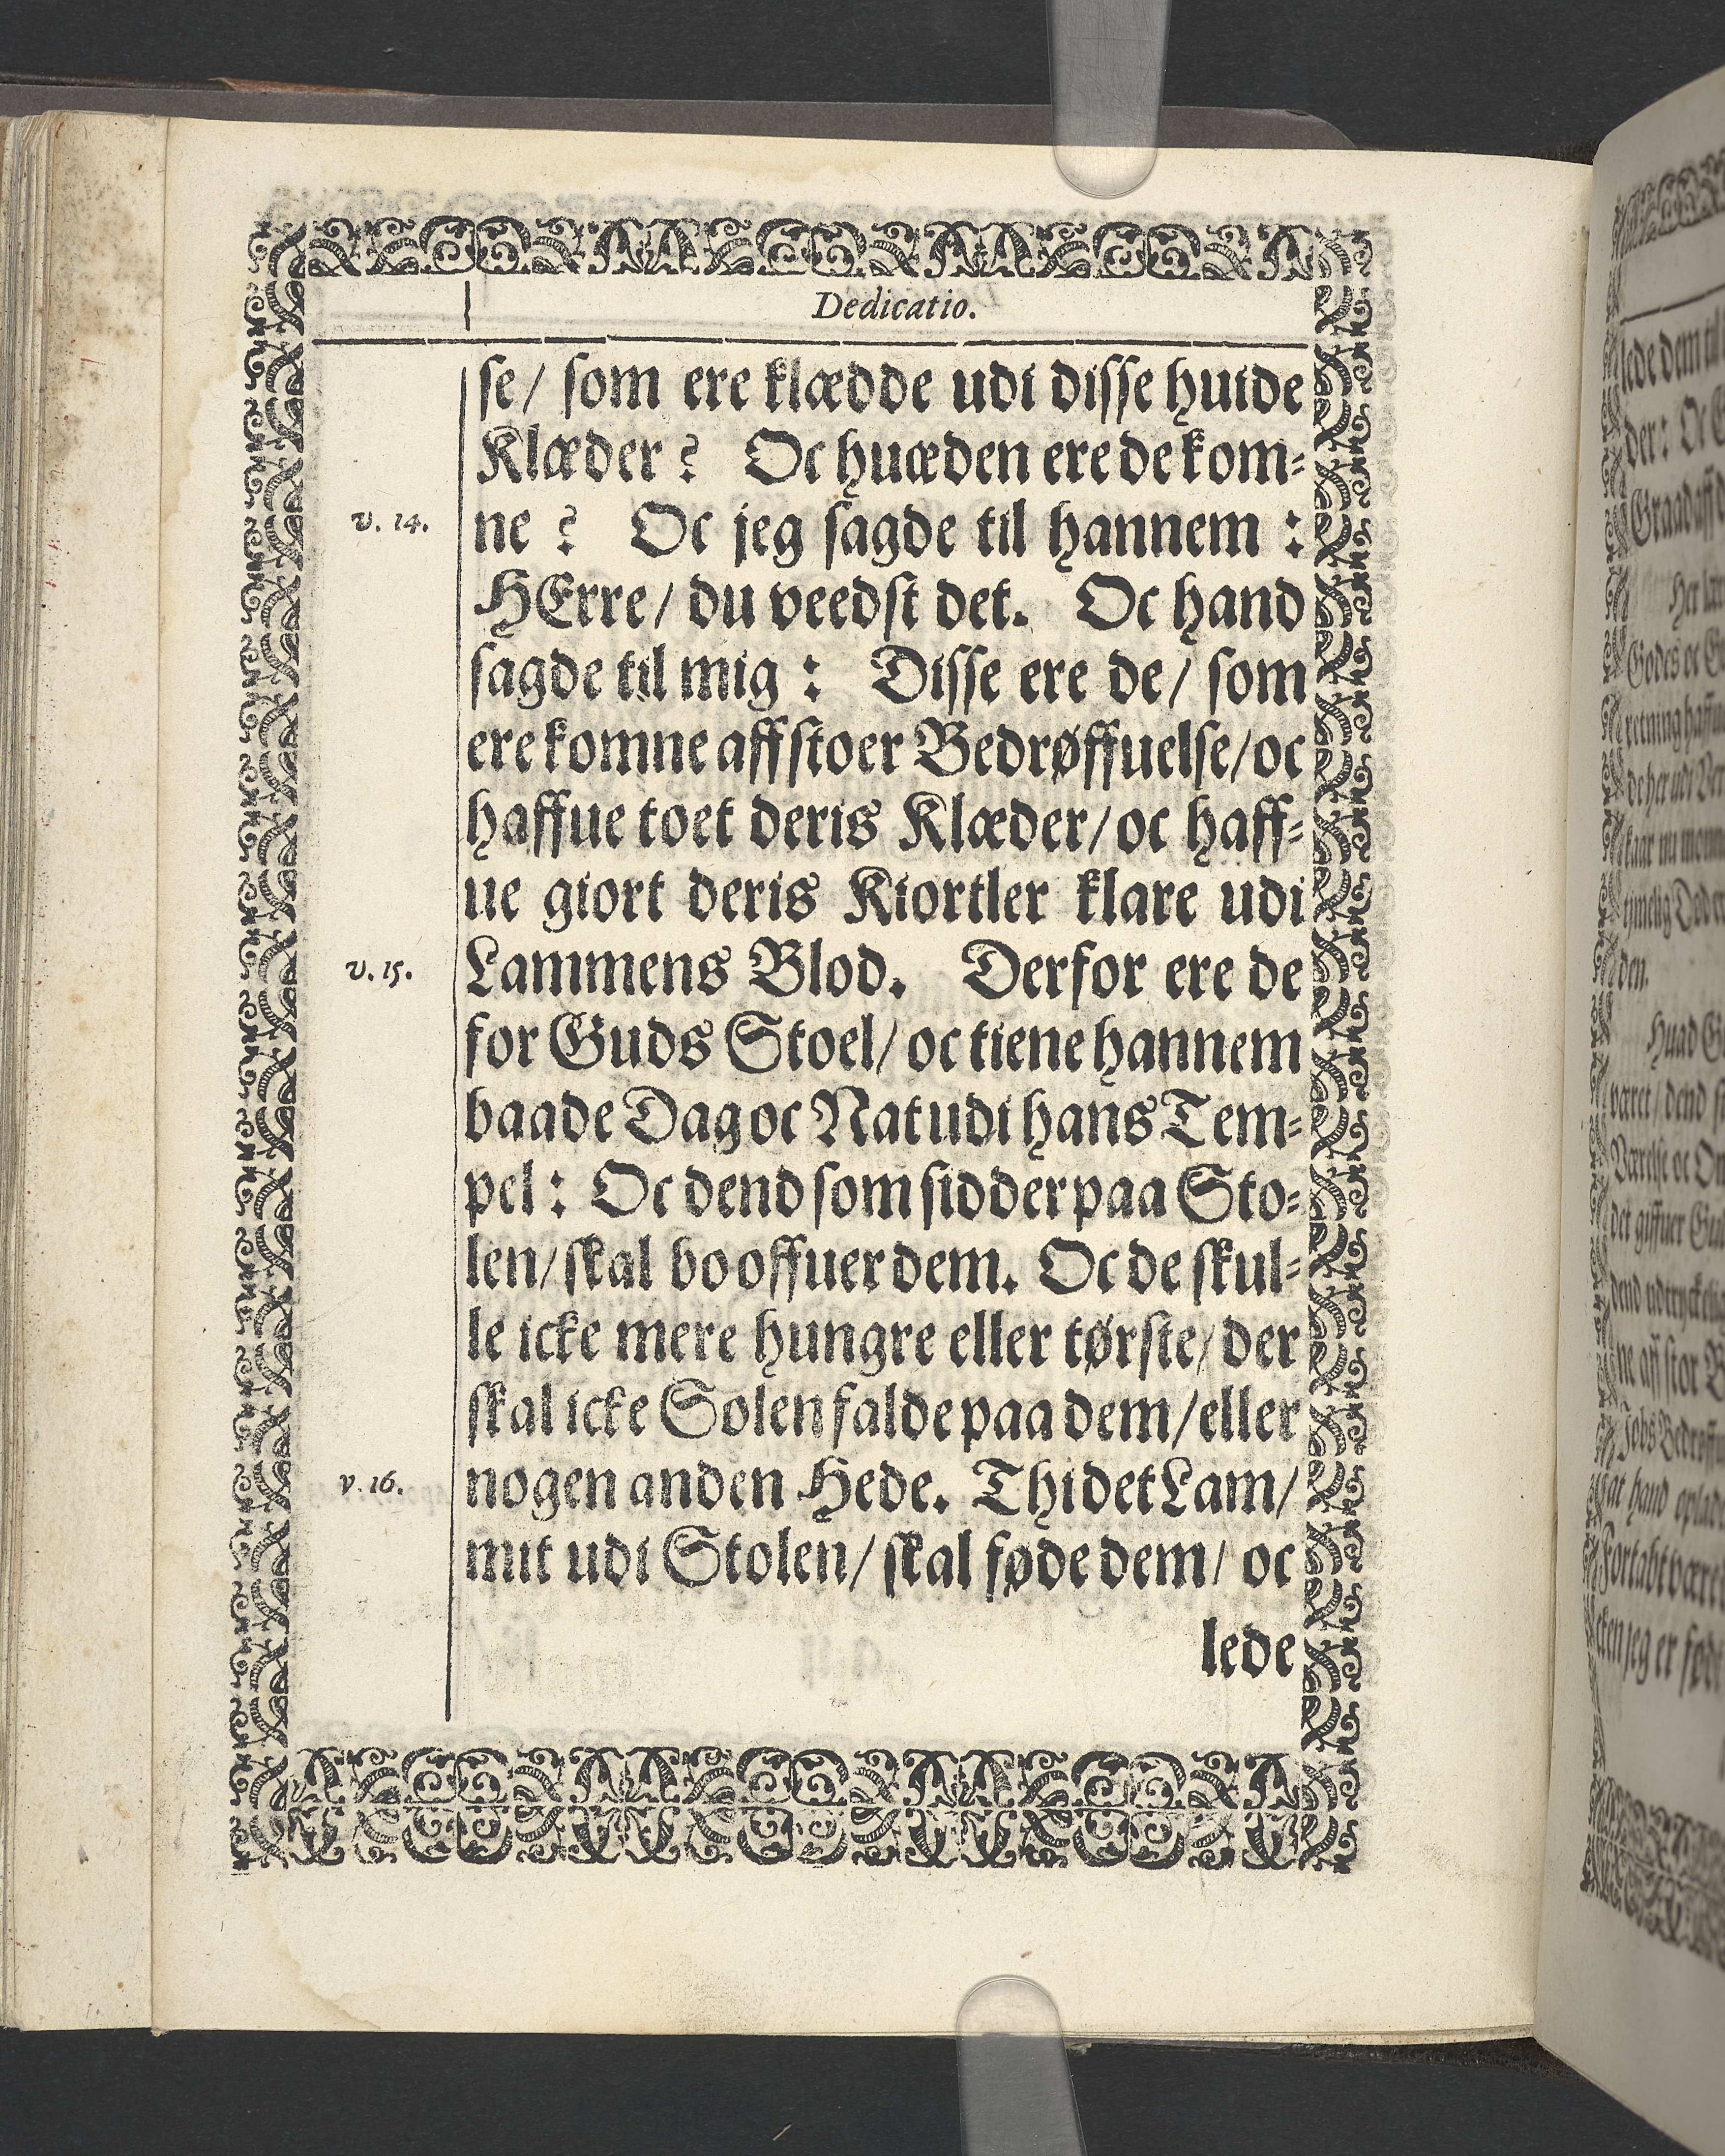 Dedicatio.
se/ som ere klædde udi disse huide
Klæder? Oc huæden ere de kom-
v. 14.
ne? Oc jeg sagde til hannem:
HErre/ du veedst det. Oc hand
sagde til mig: Disse ere de/ som
ere komne aff stoer Bedrøffuelse/ oc
haffue toet deris Klæder/ oc haff-
ue giort deris Kiortler klare udi
v. 15.
Lammens Blod. Derfor ere de
for Guds Stoel/ oc tiene hannem
baade Dag oc Nat udi hans Tem-
pel: Oc dend som sidder paa Sto-
len/ skal bo offuer dem. Oc de skul-
le icke mere hungre eller tørste/ der
skal icke Solen falde paa dem/ eller
v. 16.
nogen anden Hede. Thi det Lam/
mit udi Stolen/ skal føde dem/ oc
lede